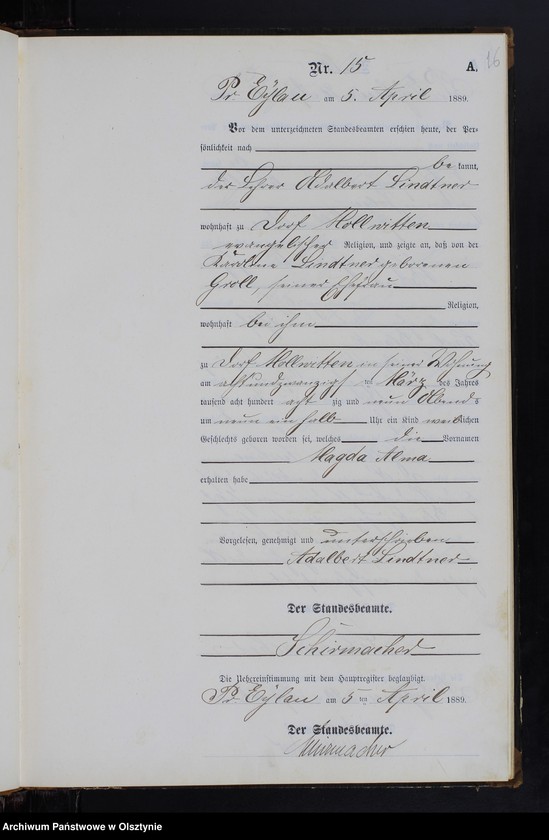 16
Nr. 15 A.
Pr Eylau am 5. April 1889.
Vor dem unterzeichneten Standesbeamten erschien heute, der Per-
sönlichkeit nach
be kannt,
der Lehrer Adalbert Lindtner
wohnhaft zu Dorf Mollwitten
evangelischer Religion, und zeigte an, daß von der
Karoline Lindtner geborenen
Groll, seiner Ehefrau
Religion,
wohnhaft bei ihm
zu Dorf Mollwitten in seiner Wohnung
am achtundzwanzigsten März des Jahres
tausend acht hundert acht zig und neun Abends
um neun ein halb Uhr ein Kind weiblichen
Geschlechts geboren worden sei, welches die Vornamen
Magda Alma
erhalten habe
Vorgelesen, genehmigt und unterschrieben
Adalbert Lindtner
Der Standesbeamte.
Schirmacher
Die Uebereinstimmung mit dem Hauptregister beglaubigt.
Pr. Eylau am 5 ten April 1889.
Der Standesbeamte.
Schirmacher
Archiwum Państwowe w Olsztynie